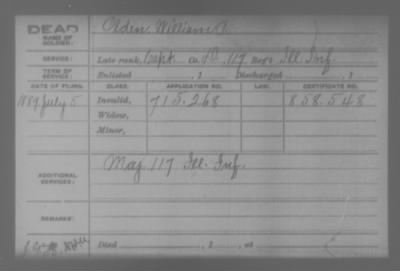 DEAD
NAME OF SOLDIER: Olden, William A.
SERVICE: Late rank, Capt. Co. D, 117 Reg't Ill. Inf.
TERM OF SERVICE: Enlisted , 1 Discharged , 1
DATE OF FILING. CLASS. APPLICATION NO. LAW. CERTIFICATE NO.
1889 July 5 Invalid, 715.268 858.548
Widow,
Minor,
ADDITIONAL SERVICES: Maj. 117 Ill. Inf.
REMARKS:
Died , 1 , at